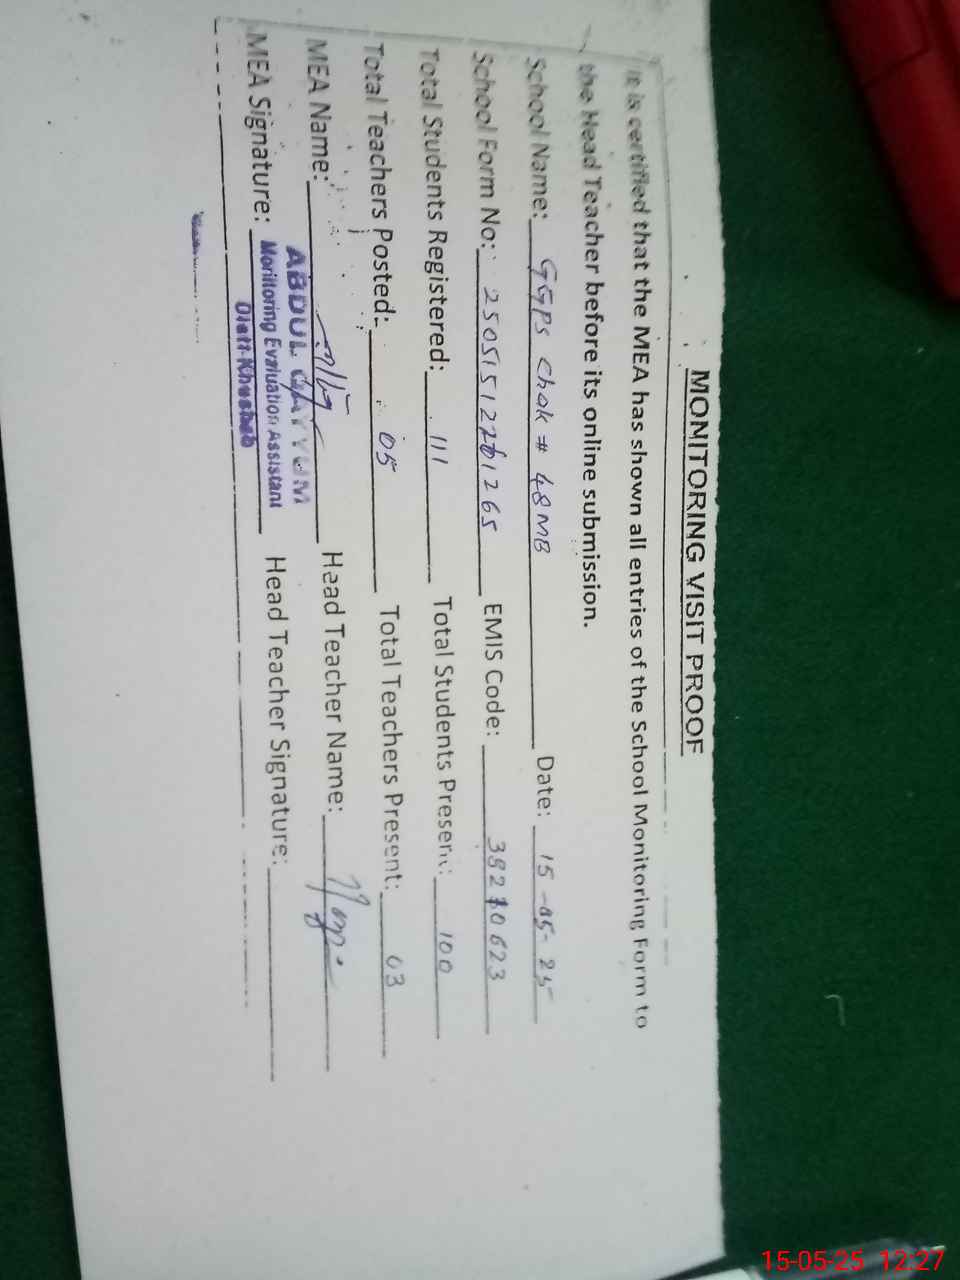 MONITORING VISIT PROOF
It is certified that the MEA has shown all entries of the School Monitoring Form to
the Head Teacher before its online submission.
School Name: GGPS Chak # 48 MB Date: 15-05-25
School Form No: EMIS Code:
Total Students Registered: 111 Total Students Present: 100
Total Teachers Posted: 05 Total Teachers Present: 03
MEA Name: ABDUL QAYYUM Head Teacher Name:
MEA Signature: Monitoring Evaluation Assistant Head Teacher Signature:
Distt. Khushab
15-05-25 12:27